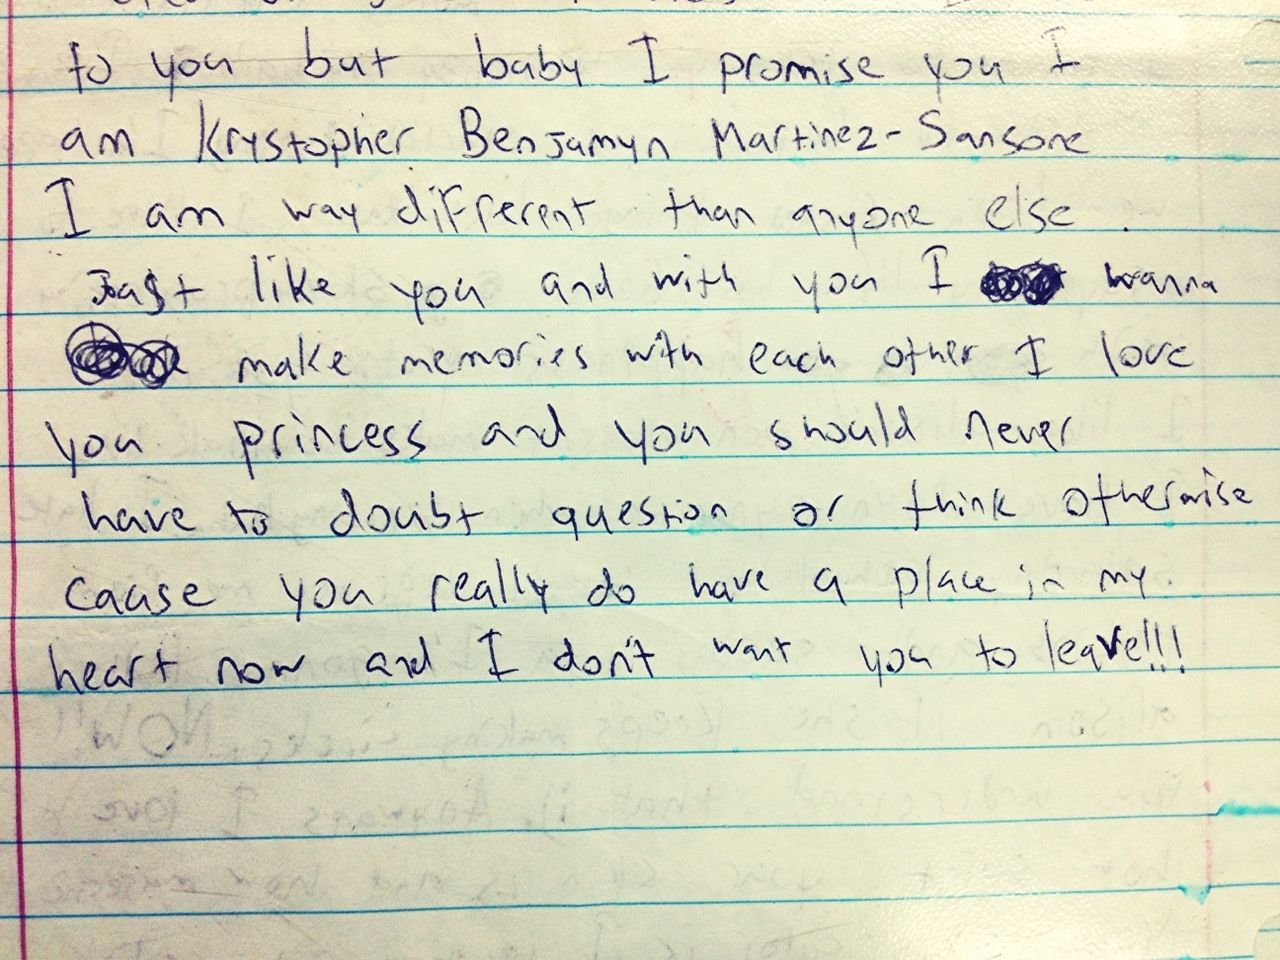 to you but baby I promise you I
am Krystopher Benjamyn Martinez-Sansone
I am way different than anyone else.
Just like you and with you I wanna
make memories with each other I love
you princess and you should never
have to doubt question or think otherwise
cause you really do have a place in my
heart now and I don't want you to leave!!!